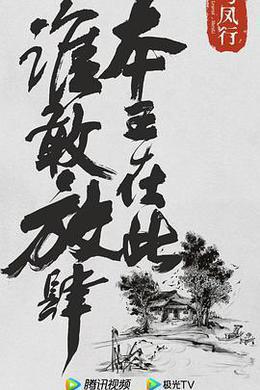 与凤行
本王在此
谁敢放肆
腾讯视频
极光TV